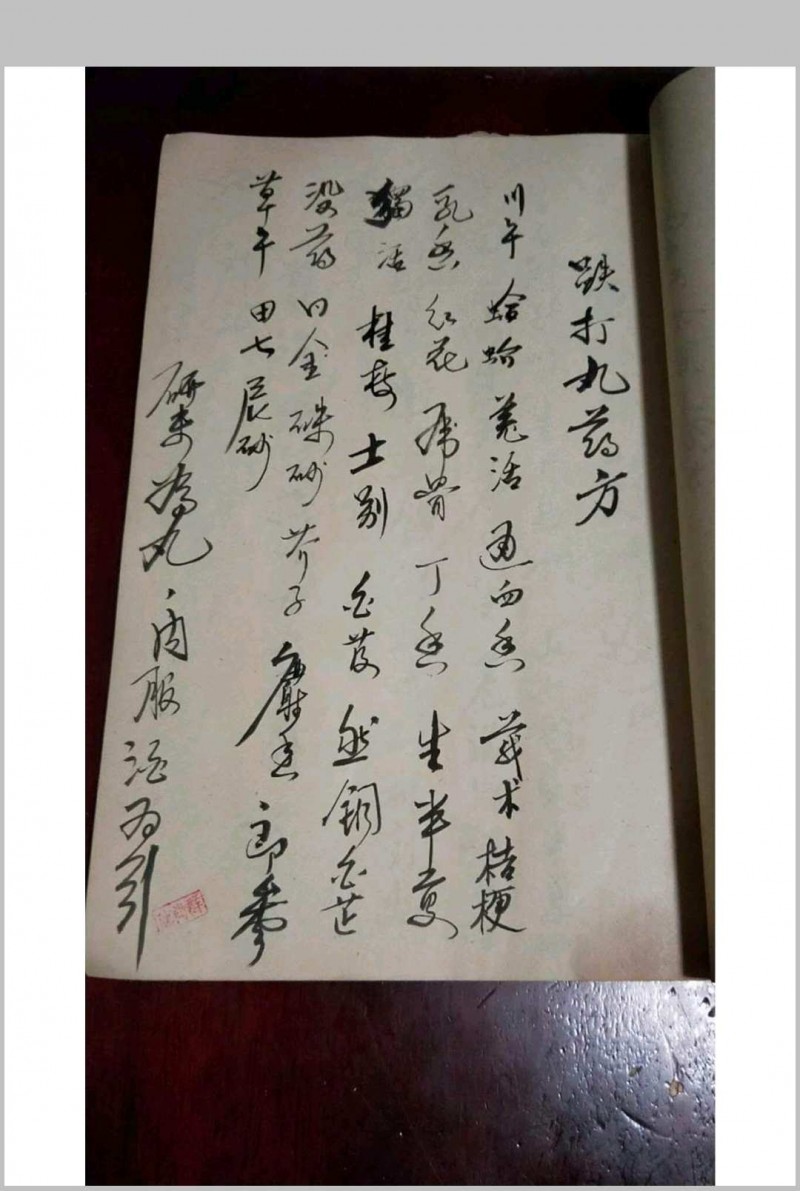 跌打丸药方
川午 蛤蚧 羌活 通血香 莪术 桔梗
乳香 红花 虎骨 丁香 生半夏
獨活 桂枝 土别 白芨 然铜 白芷
没药 金 硃砂 芥子 麝香
草午 田七 辰砂
研末為丸、内服 酒为引